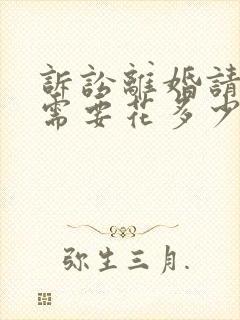 訴訟離婚請
需要花多少
弥生三月.